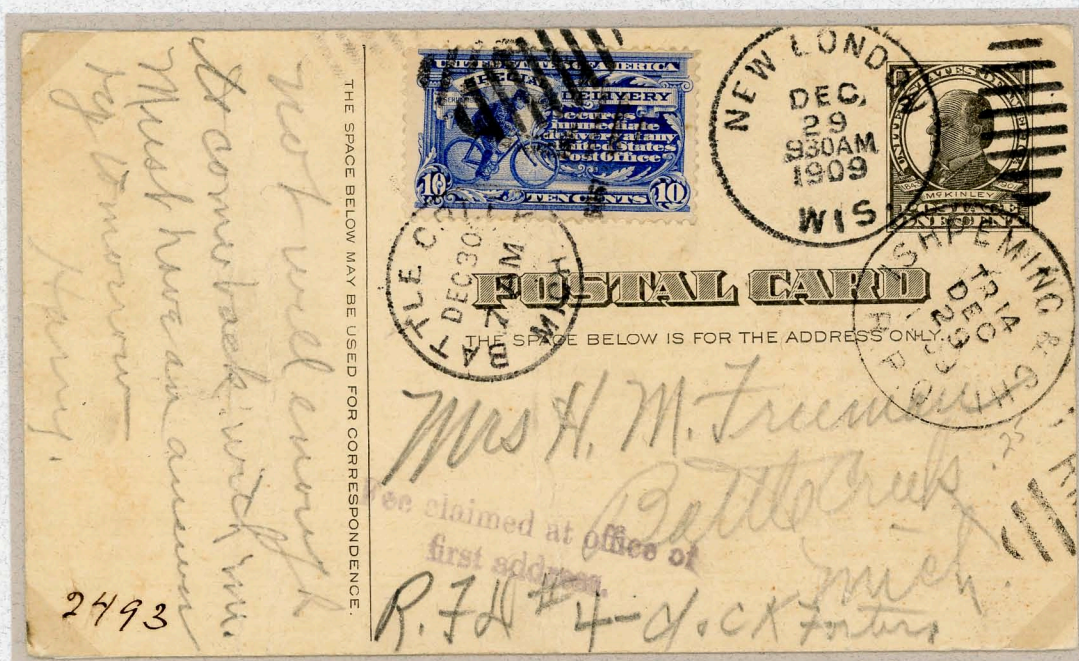 not well enough
to come back with me.
Must have an answer
by tomorrow
Harry.
2493
THE SPACE BELOW MAY BE USED FOR CORRESPONDENCE.
UNITED STATES OF AMERICA
SPECIAL
DELIVERY
Secures
immediate
delivery at any
United States
Post Office
10 TEN CENTS 10
NEW LONDON
DEC
29
930AM
1909
WIS.
McKINLEY
BATTLE
DEC 30
7 AM
MICH
ISHPEMING & CHI
TR 14
DEC
29
R.P.O.
POSTAL CARD
THE SPACE BELOW IS FOR THE ADDRESS ONLY.
Mrs H. M. Freeman
Battle Creek
Mich.
Fee claimed at office of
first address.
R.F.D #4